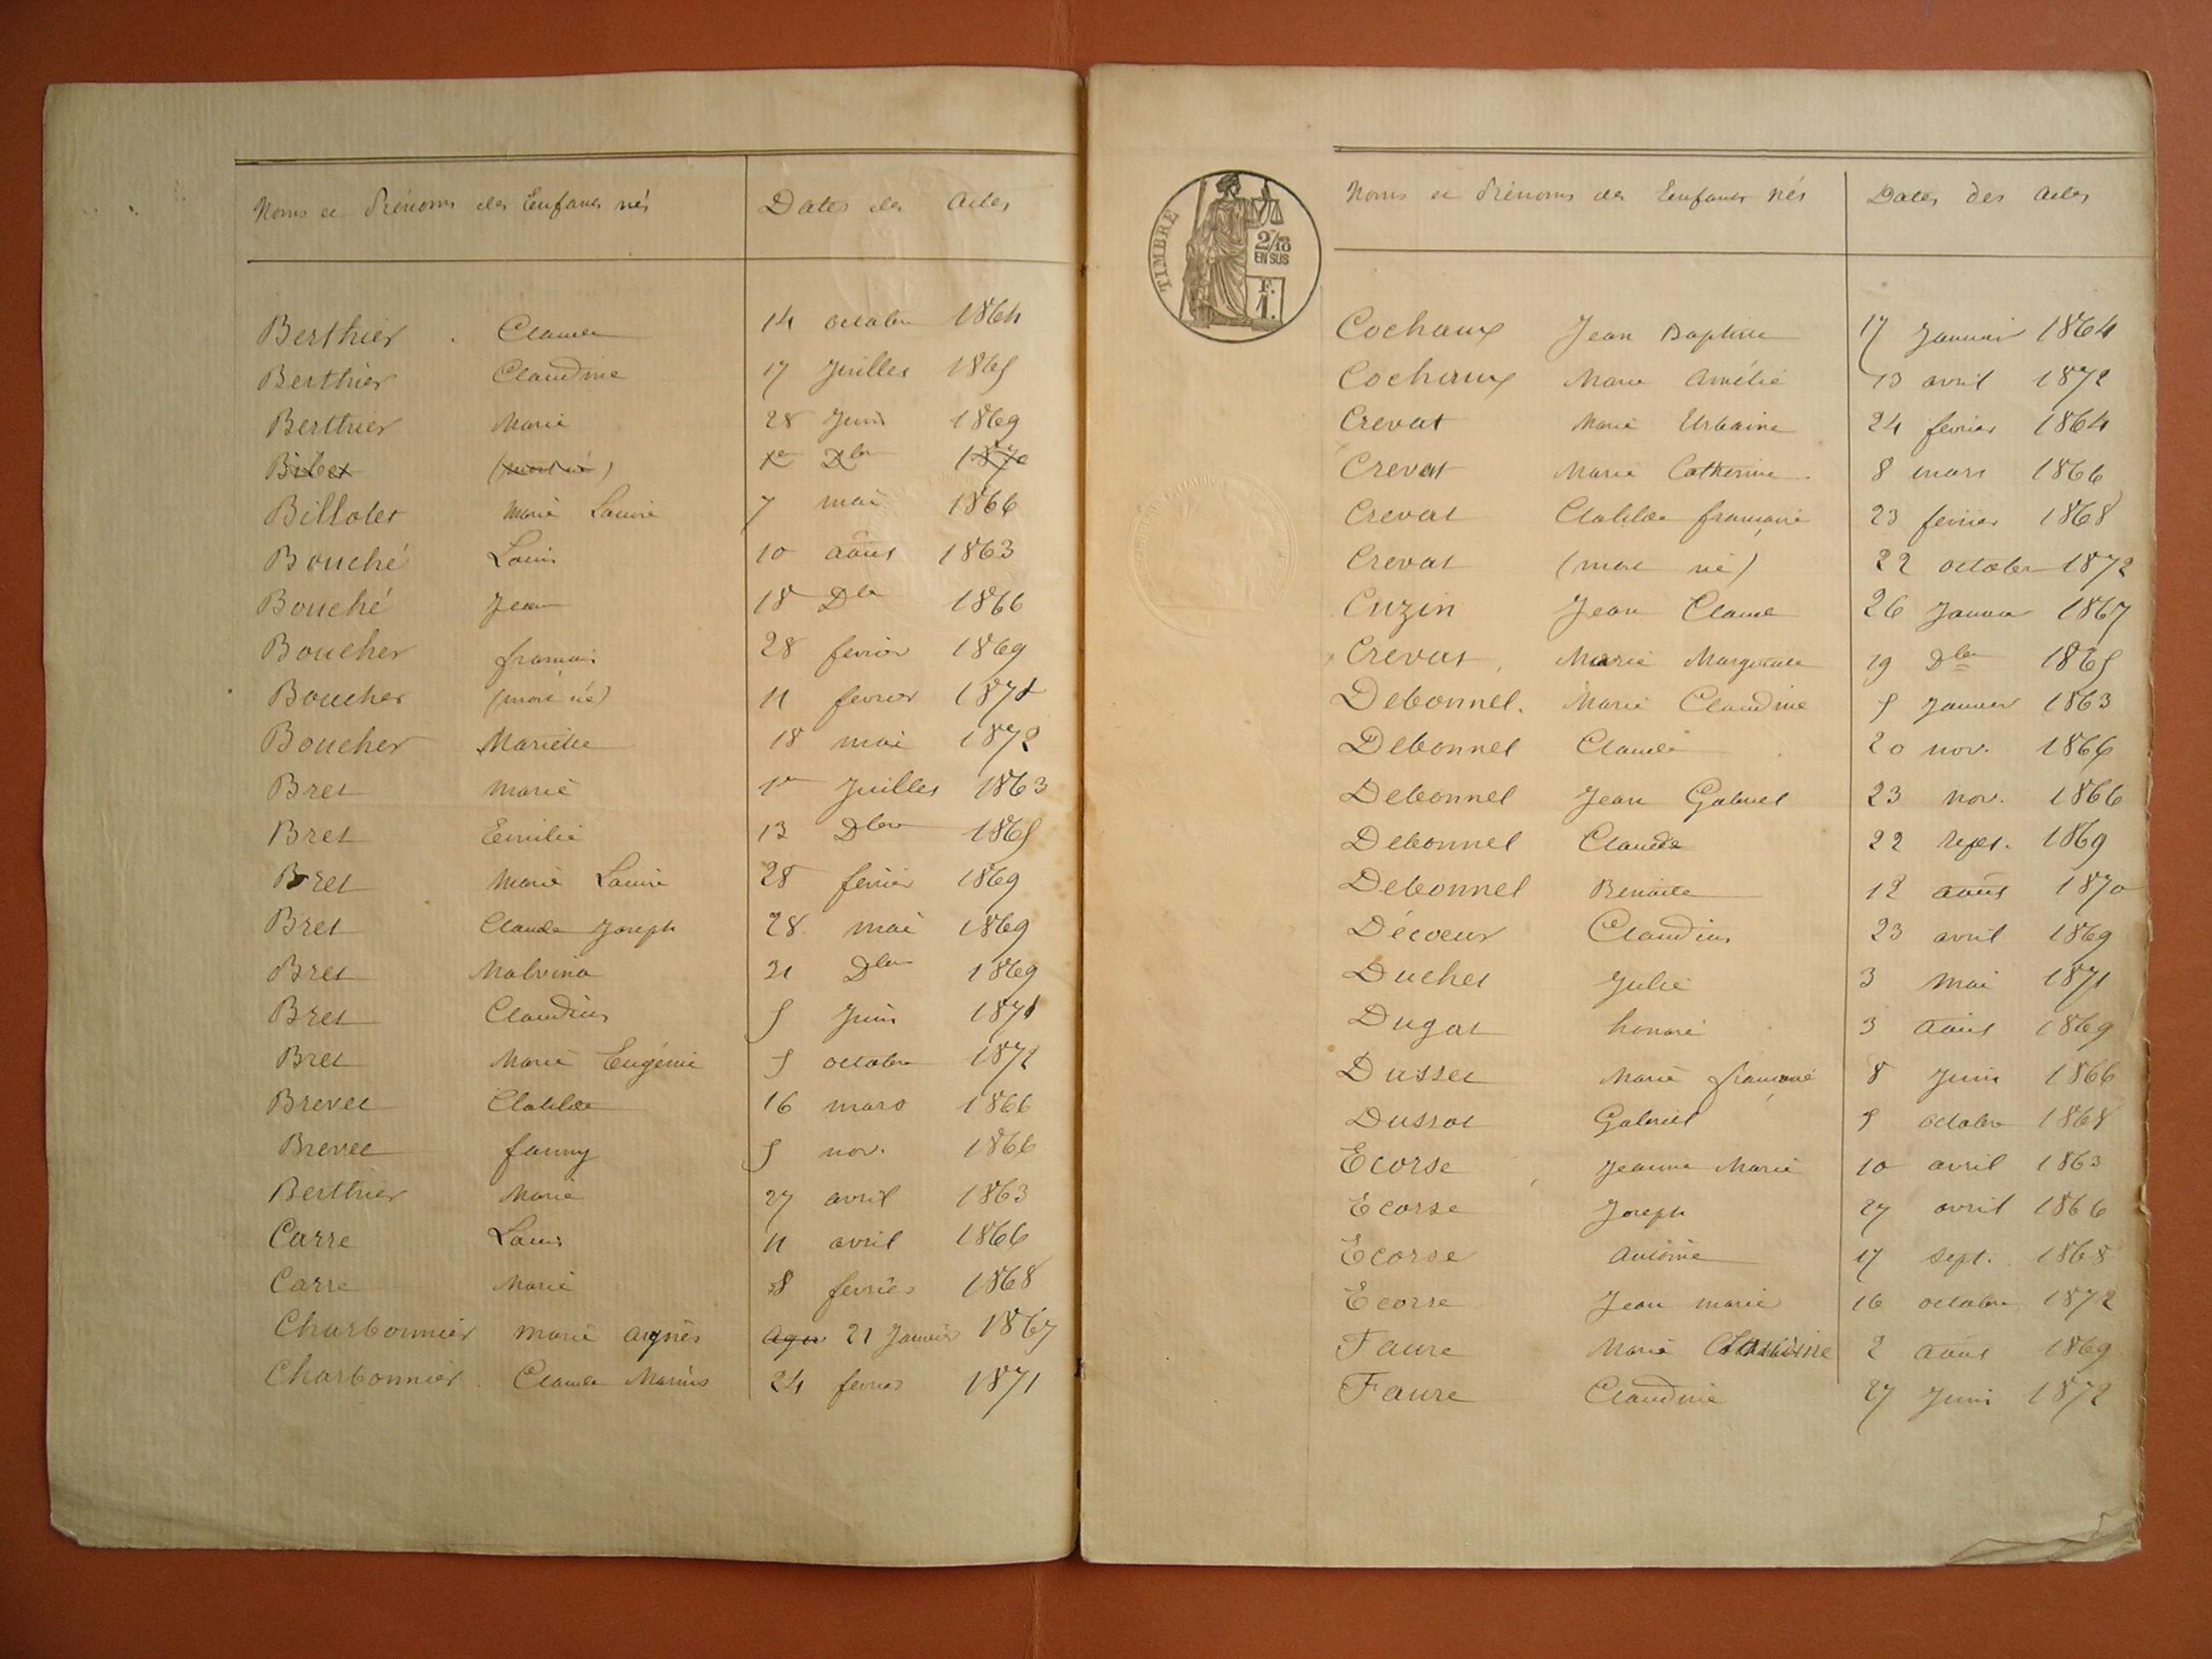 Noms et Prénoms des Enfants nés Dates des actes
Berthier Claude 14 octobre 1864
Berthier Claudine 17 Juillet 1865
Berthier Marie 28 Juin 1869
Bibet (mort né) 1er Dbre 1870
Billotet Marie Louise 7 mai 1866
Bouché Louis 10 août 1863
Bouché Jean 18 Dbre 1866
Boucher françois 28 fevrier 1869
Boucher (mort né) 11 fevrier 1871
Boucher Mariette 18 mai 1872
Bret Marie 1er Juillet 1863
Bret Emilie 13 Dbre 1865
Bret Marie Louise 28 fevrier 1869
Bret Claude Joseph 28 mai 1869
Bret Malvina 21 Dbre 1869
Bret Claudius 5 Juin 1871
Bret Marie Eugénie 5 octobre 1872
Brevet Clotilde 16 mars 1866
Brevet fanny 5 nov. 1866
Berthier Marie 27 avril 1863
Carre Louis 11 avril 1866
Carre Marie 8 fevrier 1868
Charbonnier Marie agnès 21 Janvier 1867
Charbonnier Claude Marius 24 fevrier 1871
TIMBRE
2/10
EN SUS
F.
1.
Noms et Prénoms des Enfants nés Dates des actes
Cochaux Jean Baptiste 17 Janvier 1864
Cochaux Marie Amélie 13 avril 1872
Crevat Marie Urbaine 24 fevrier 1864
Crevat Marie Catherine 8 mars 1866
Crevat Clotilde françoise 23 fevrier 1868
Crevat (mort né) 22 octobre 1872
Cuzin Jean Claude 26 Janvier 1867
Crevat Marie Marguerite 19 Dbre 1865
Debonnel Marie Claudine 5 Janvier 1863
Debonnel Claude 20 nov. 1866
Debonnel Jean Gabriel 23 nov. 1866
Debonnel Claude 22 sept. 1869
Debonnel Benoite 12 août 1870
Décoeur Claudius 23 avril 1869
Duchet Julie 3 Mai 1871
Dugat honoré 3 août 1869
Dusset Marie françoise 8 Juin 1866
Dussot Gabriel 5 octobre 1868
Ecorse Jeanne Marie 10 avril 1863
Ecorse Joseph 27 avril 1866
Ecorse Antoine 17 sept. 1868
Ecorse Jean marie 16 octobre 1872
Faure Marie Claudine 2 août 1869
Faure Claudine 27 Juin 1872